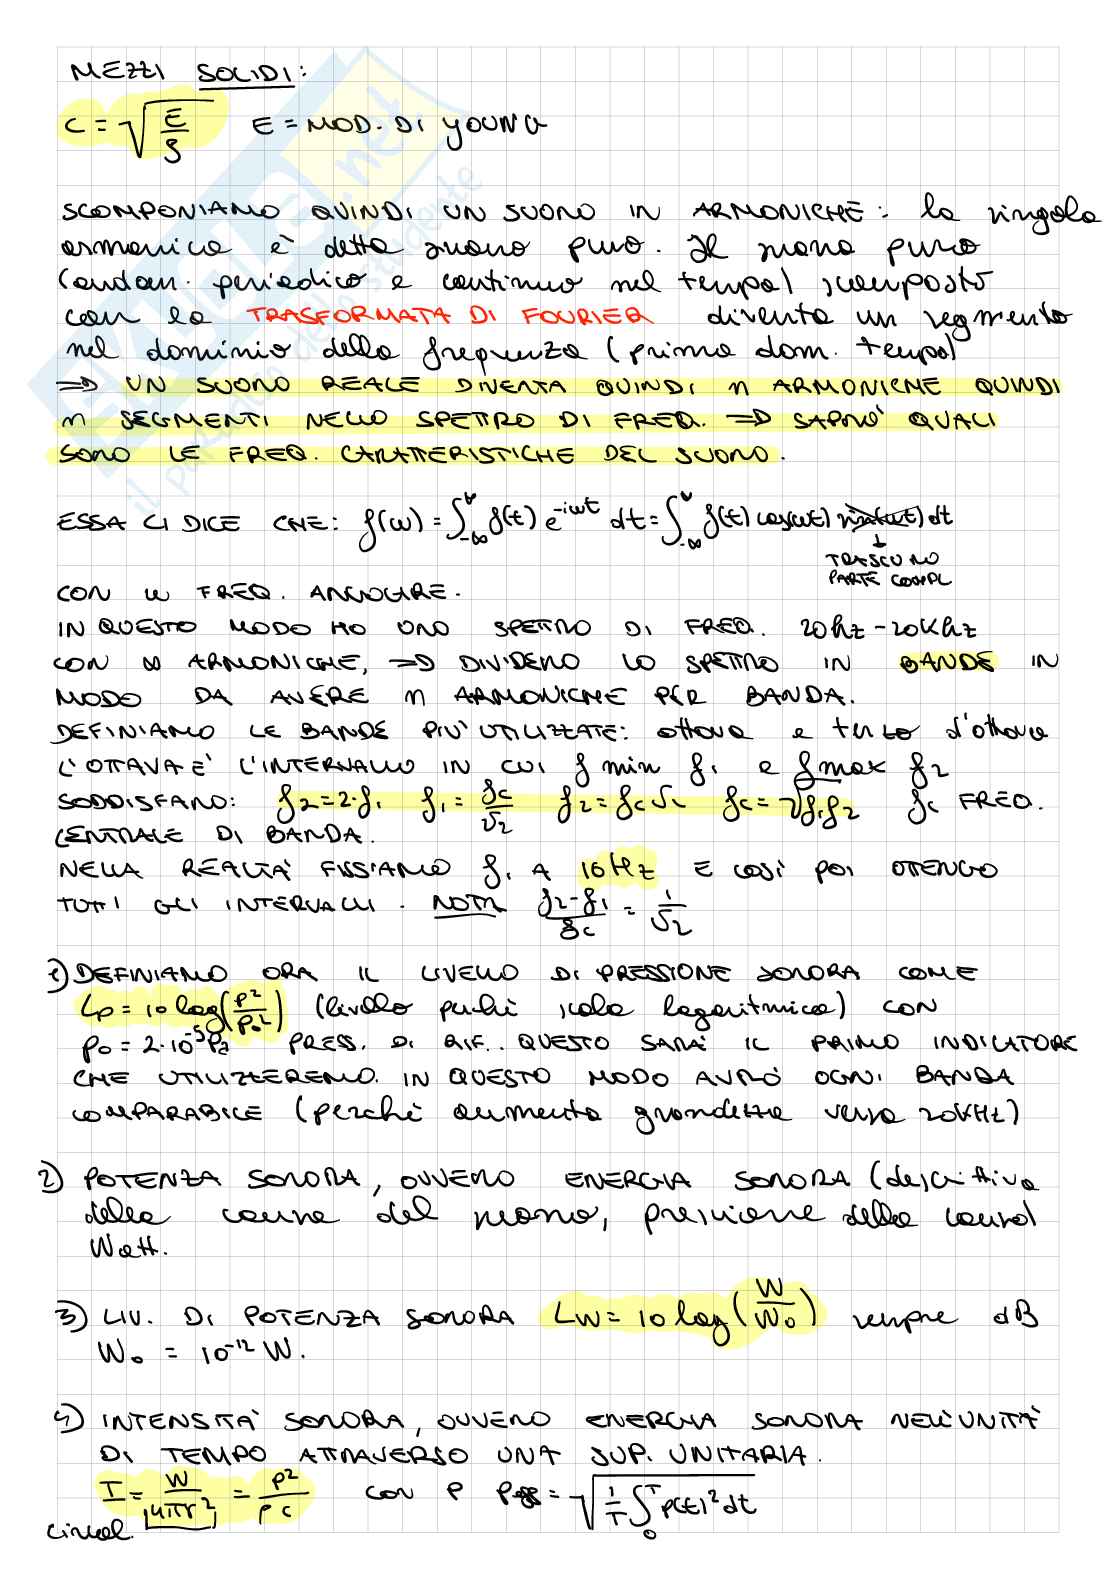 MEZZI SOLIDI:
C = √(E/ρ) E = MOD. DI YOUNG
SCOMPONIAMO QUINDI UN SUONO IN ARMONICHE: la singola
armonica è detta suono puro. Il suono puro
(andam. periodico e continuo nel tempo) scomposto
con la TRASFORMATA DI FOURIER diventa un segmento
nel dominio della frequenza (prima dom. tempo)
⇒ UN SUONO REALE DIVENTA QUINDI n ARMONICHE QUINDI
n SEGMENTI NELLO SPETTRO DI FREQ. ⇒ SAPRO' QUALI
SONO LE FREQ. CARATTERISTICHE DEL SUONO.
ESSA CI DICE CHE: f(ω) = ∫_{-∞}^{∞} f(t) e^{-iωt} dt = ∫_{-∞}^{∞} f(t) cos(ωt) sin(ωt) dt
↓
TRASCURO
PARTE COMPL
CON ω FREQ. ANGOLARE.
IN QUESTO MODO HO UNO SPETTRO DI FREQ. 20hz - 20Khz
CON ∞ ARMONICHE, ⇒ DIVIDERO LO SPETTRO IN BANDE IN
MODO DA AVERE n ARMONICHE PER BANDA.
DEFINIAMO LE BANDE PIU' UTILIZZATE: ottava e terzo d'ottava
L'OTTAVA E' L'INTERVALLO IN CUI f min f₁ e f max f₂
SODDISFANO: f₂ = 2·f₁ f₁ = fc/√2 f₂ = fc√2 fc = √f₁f₂ fc FREQ.
CENTRALE DI BANDA.
NELLA REALTA' FISSIAMO f₁ A 16Hz E COSÌ POI OTTENGO
TUTTI GLI INTERVALLI. NOTA (f₂-f₁)/fc = 1/√2
1) DEFINIAMO ORA IL LIVELLO DI PRESSIONE SONORA COME
Lp = 10 log(p²/p₀²) (livello perchè scala logaritmica) CON
p₀ = 2·10⁻⁵Pa PRESS. DI RIF.. QUESTO SARA' IL PRIMO INDICATORE
CHE UTILIZZEREMO. IN QUESTO MODO AVRÒ OGNI BANDA
COMPARABILE (perchè aumenta grandezza verso 20KHz)
2) POTENZA SONORA, OVVERO ENERGIA SONORA (descrittiva
della causa del suono, pressione della causa)
Watt.
3) LIV. DI POTENZA SONORA Lw = 10 log(W/W₀) sempre dB
W₀ = 10⁻¹² W.
4) INTENSITA' SONORA, OVVERO ENERGIA SONORA NELL'UNITÀ
DI TEMPO ATTRAVERSO UNA SUP. UNITARIA.
I = W/(4πr²) = p²/(ρ c) CON P Peff = √(1/T ∫₀ᵀ p(t)² dt)